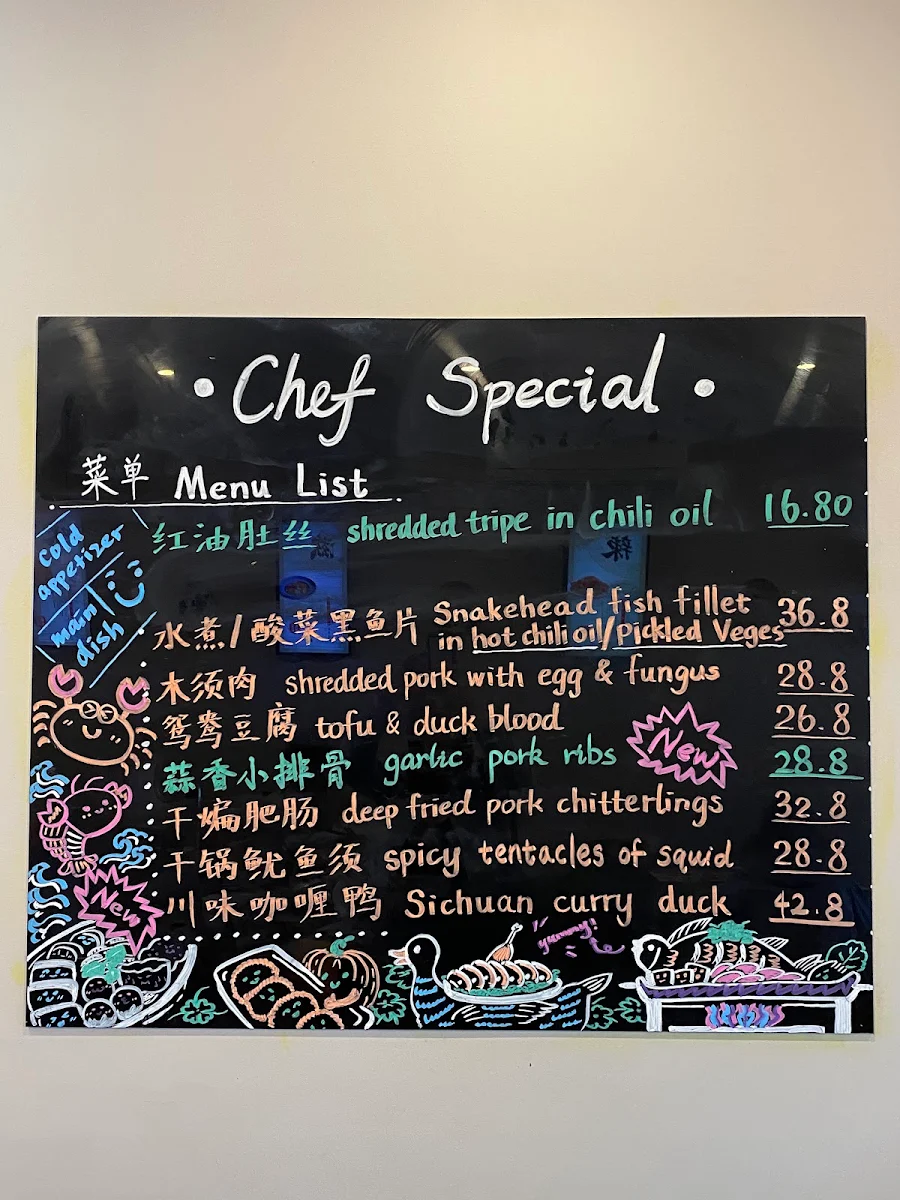 · Chef Special ·
菜单 Menu List
cold
appetizer
红油肚丝 shredded tripe in chili oil 16.80
main
dish
水煮/酸菜黑鱼片 Snakehead fish fillet
in hot chili oil/Pickled Veges 36.8
木须肉 shredded pork with egg & fungus 28.8
鸳鸯豆腐 tofu & duck blood 26.8
蒜香小排骨 garlic pork ribs New 28.8
干煸肥肠 deep fried pork chitterlings 32.8
干锅鱿鱼须 spicy tentacles of squid 28.8
New 川味咖喱鸭 Sichuan curry duck 42.8
yummy!
辣